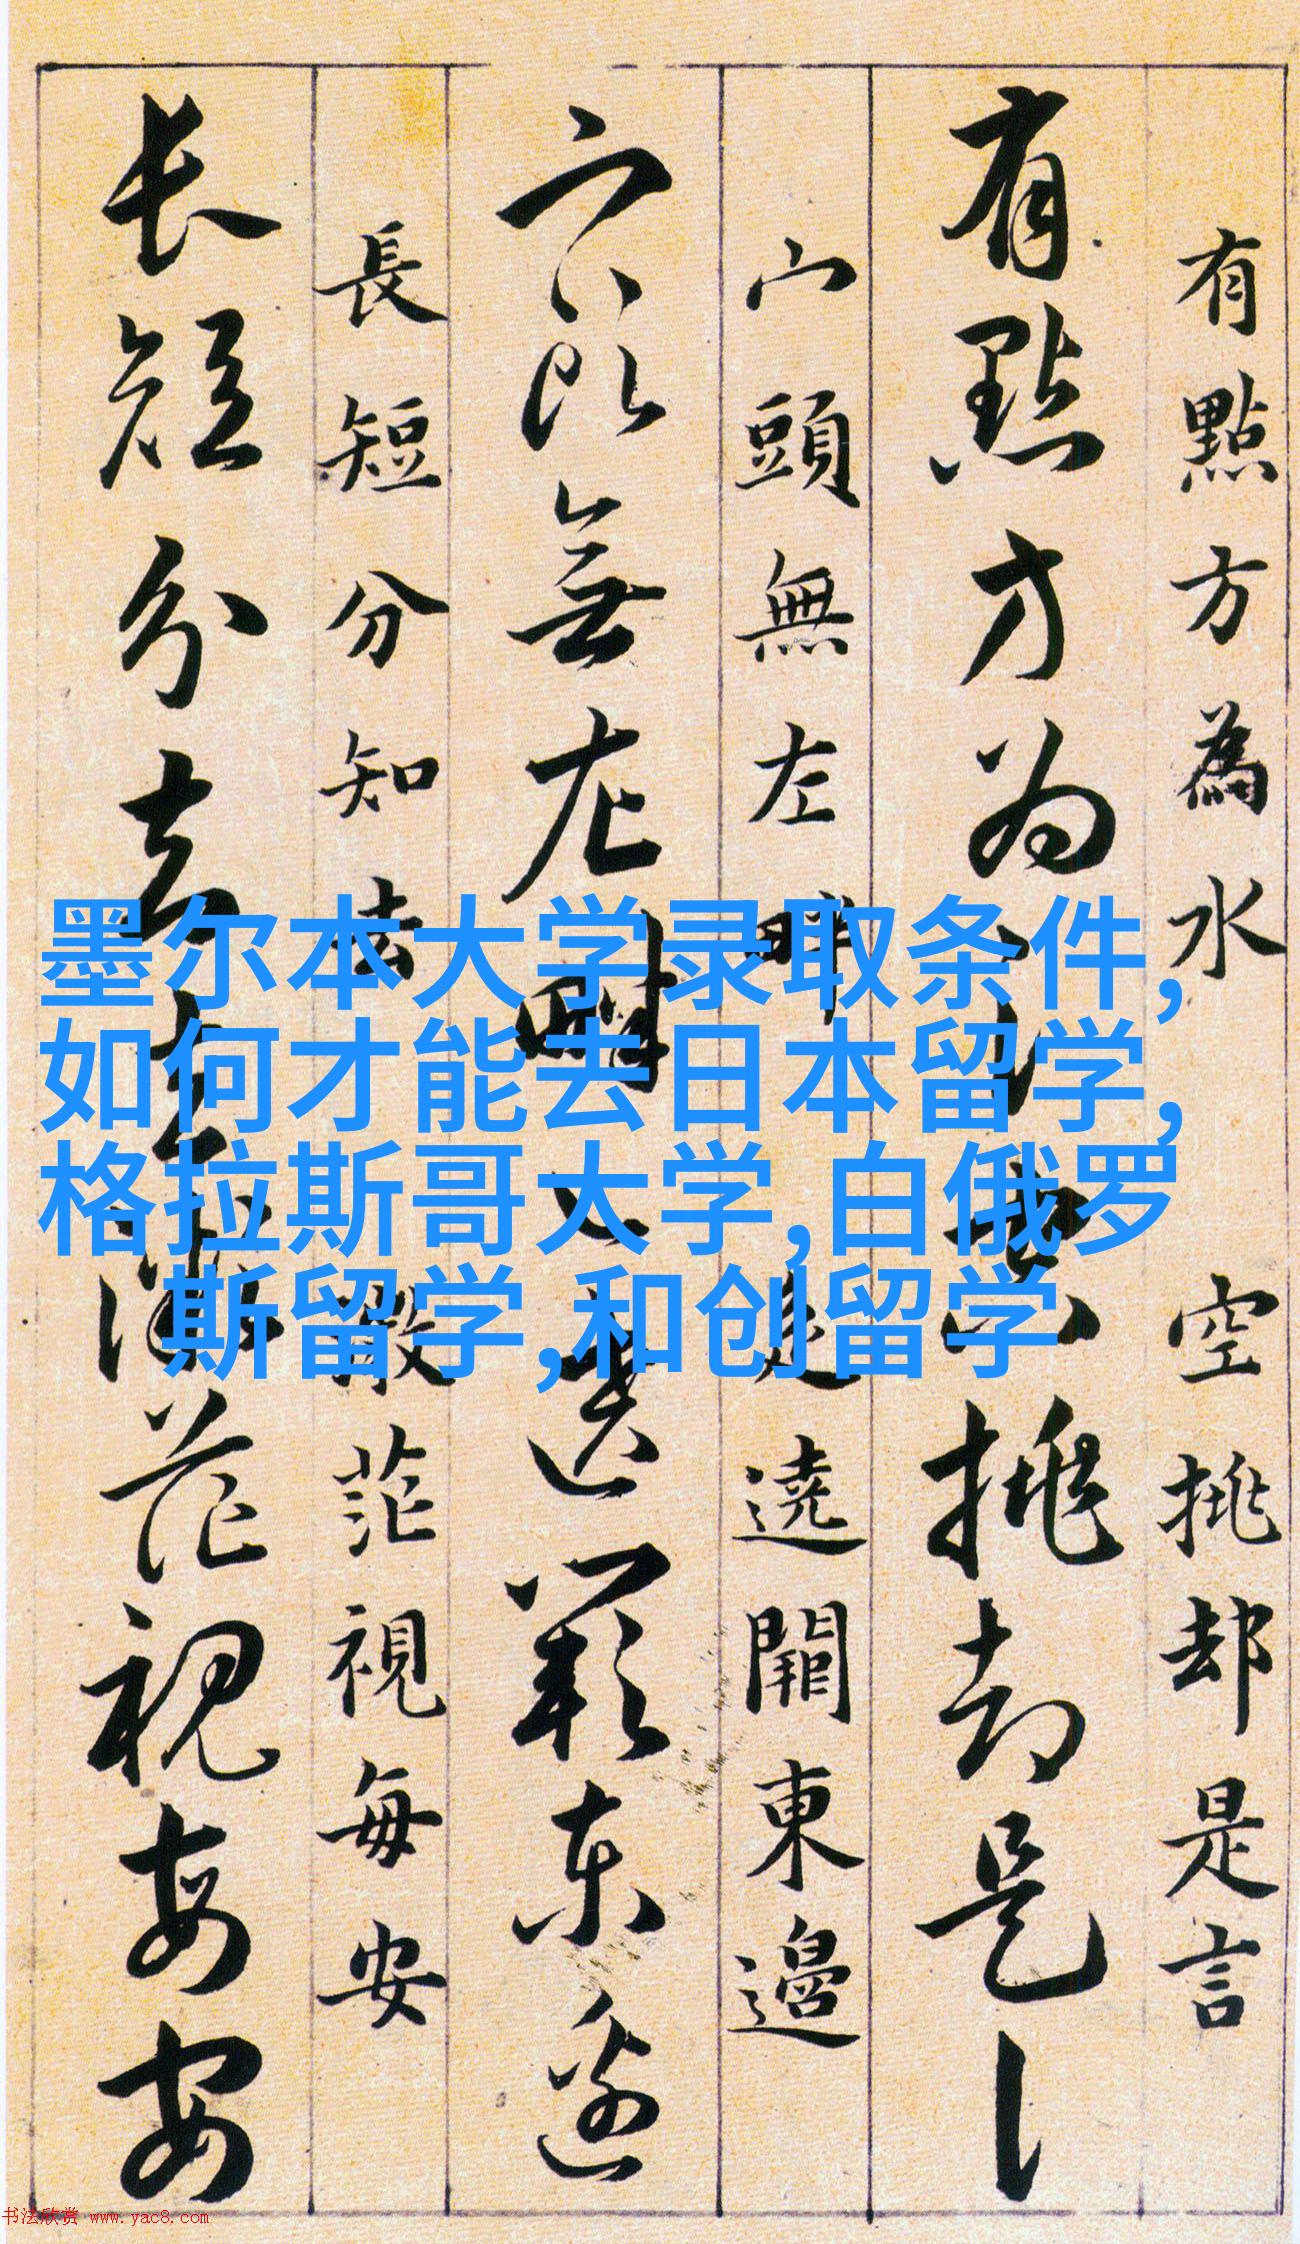 有點方為水 空挑却是言
有點方為 挑却是讠
宀頭無左 走遶開東邊
宀頭無左 遶 東邊
長短分知去 散茫視每安
长短分去去 茫視每安
墨尔本大学录取条件,
如何才能去日本留学,
格拉斯哥大学,白俄罗
斯留学,和创留学
书法欣赏 www.yac8.com